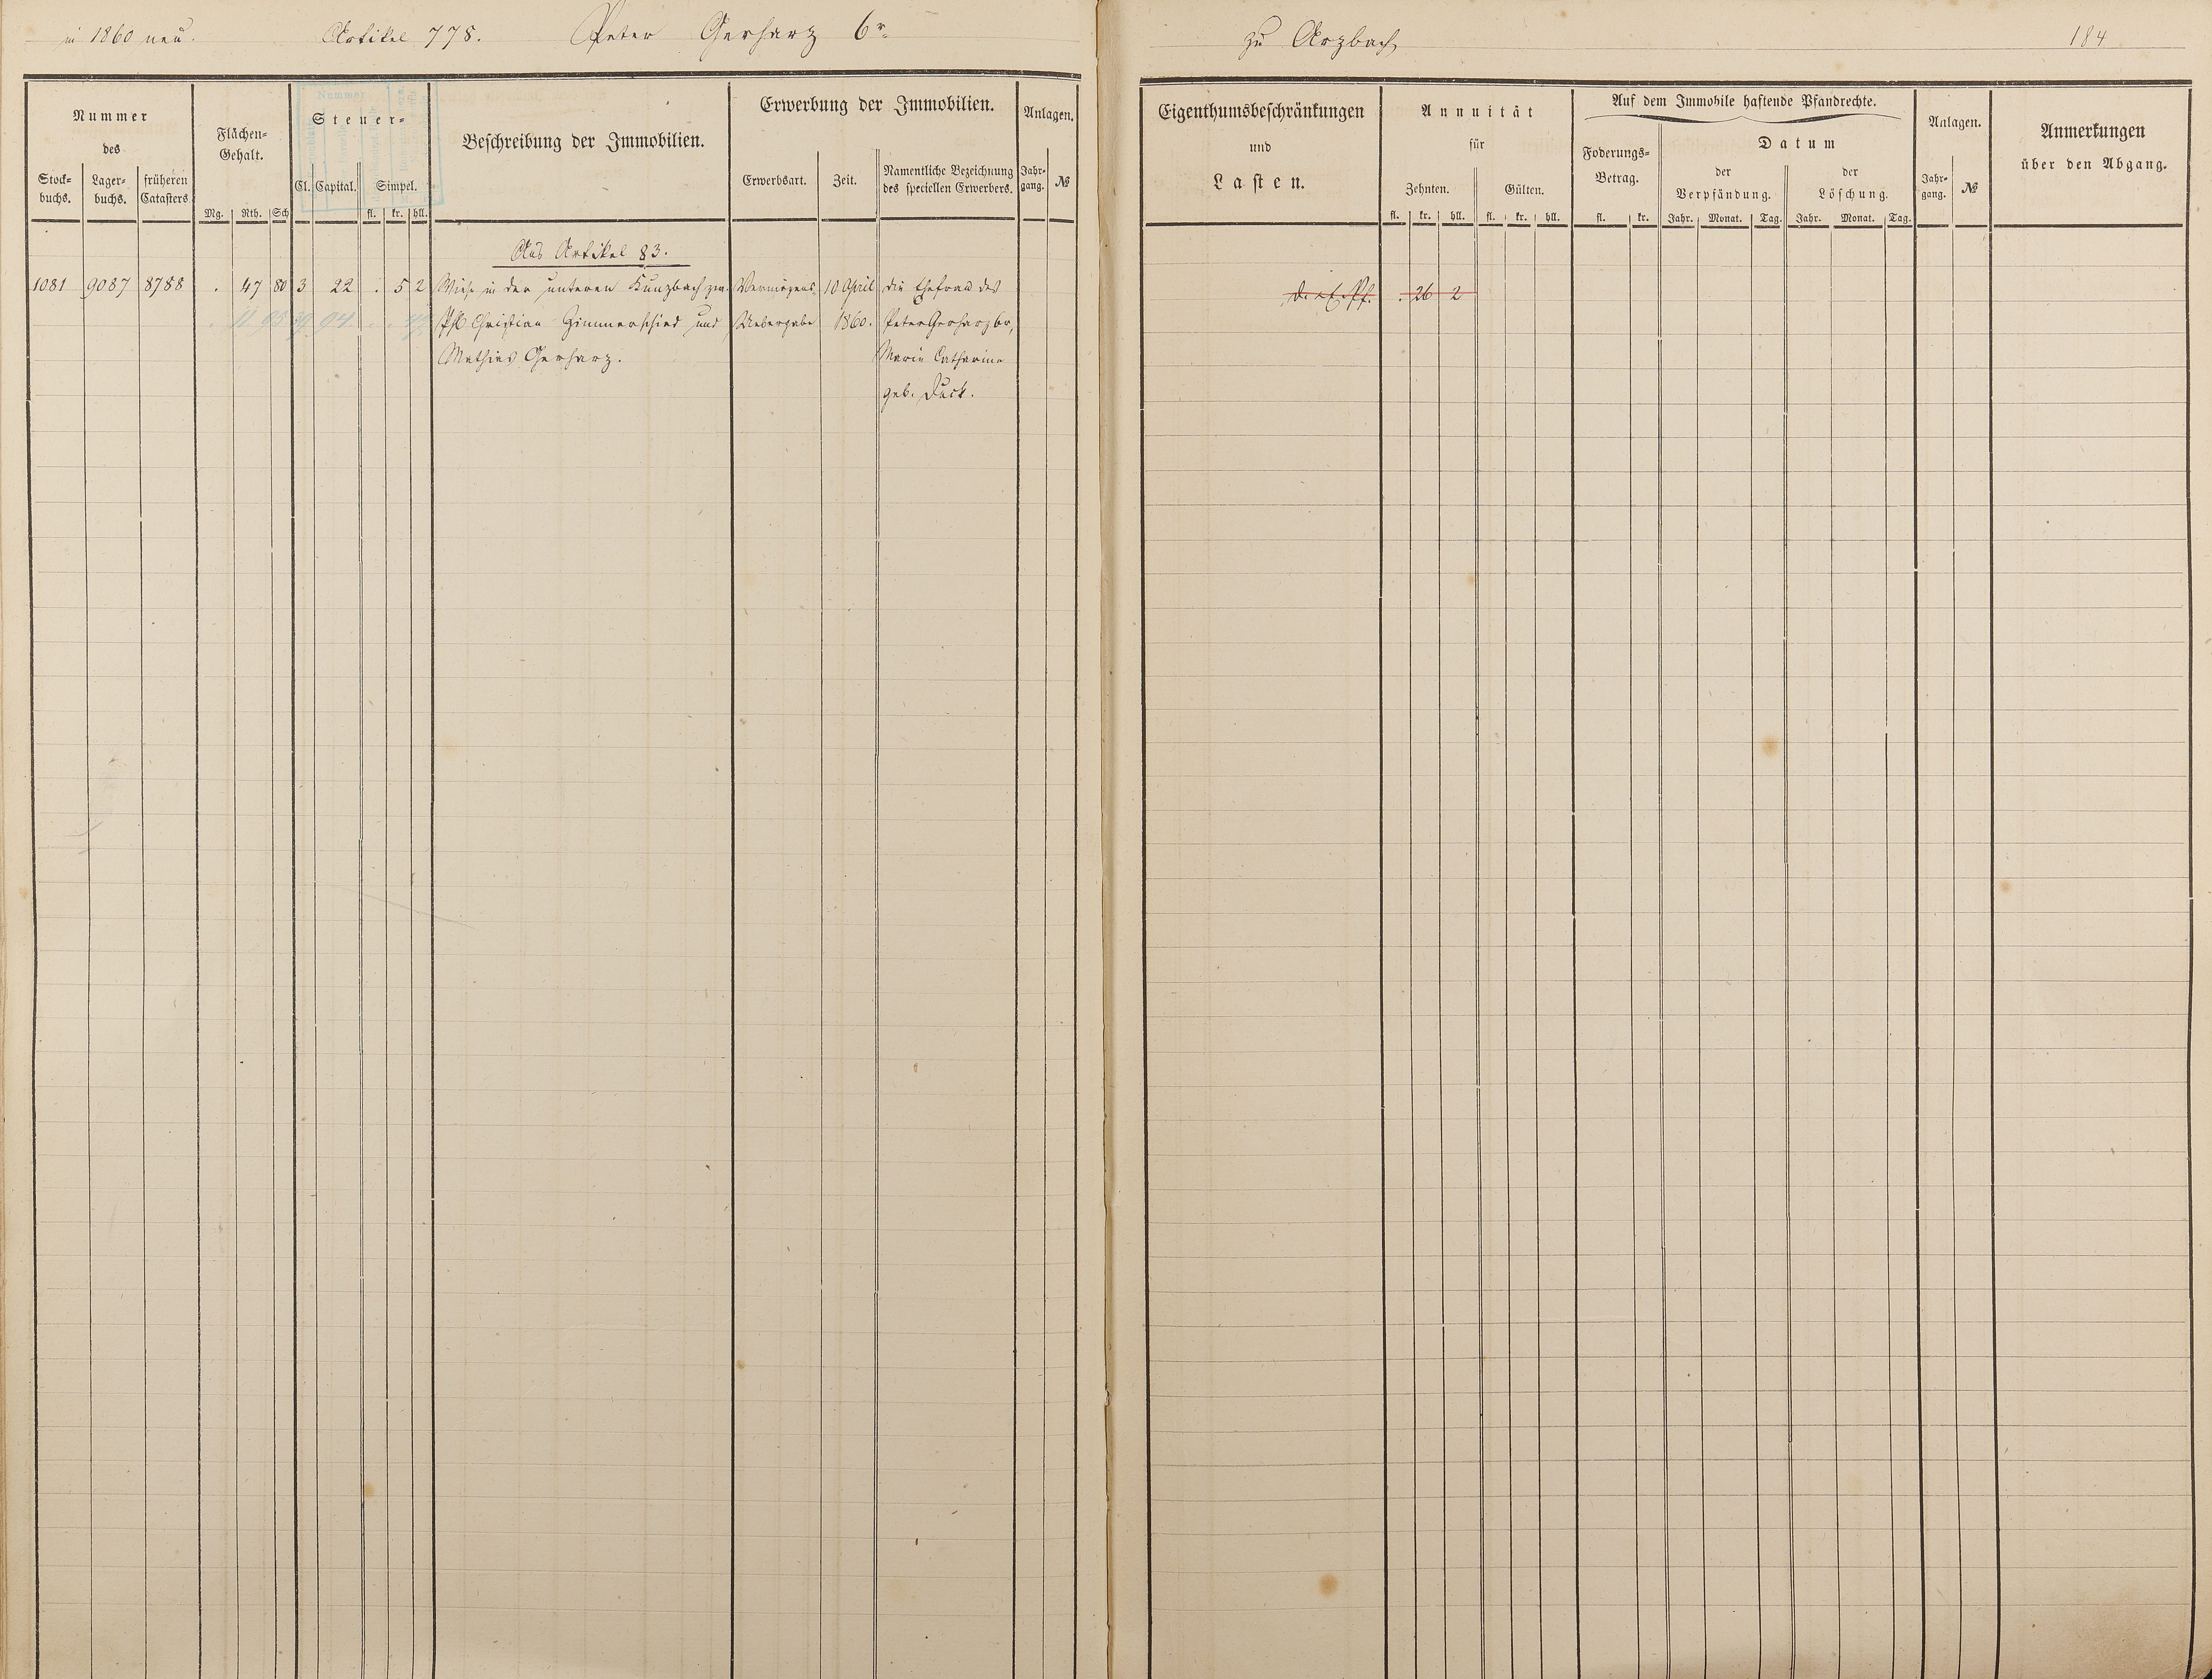 in 1860 neu. Artikel 778. Peter Gerharz 6r
zu Arzbach 184
Nummer
des
Stock-
buchs.
Lager-
buchs.
früheren
Catasters
Flächen-
Gehalt.
Mg. Rth. Sch
Steuer-
Cl. Capital. Simpel.
fl. kr. hll.
Beschreibung der Immobilien.
Erwerbung der Immobilien.
Erwerbsart. Zeit.
Namentliche Bezeichnung
des speciellen Erwerbers.
Anlagen.
Jahr-
gang.
№
Eigenthumsbeschränkungen
und
Lasten.
Annuität
für
Zehnten. Gülten.
fl. kr. hll. fl. kr. hll.
Auf dem Immobile haftende Pfandrechte.
Foderungs-
Betrag.
fl. kr.
Datum
der
Verpfändung.
der
Löschung.
Jahr. Monat. Tag. Jahr. Monat. Tag.
Anlagen.
Jahr-
gang.
№
Anmerkungen
über den Abgang.
Aus Artikel 83.
1081 9087 8788 . 47 80 3 22 . 5 2 Wiese in der unteren Kunzbach zw. Vermögens- 10 April die Ehefrau des . 26 2
. 11 95 94 Christian Zimmerschied und Uebergabe 1860. Peter Gerharz 6r,
Mathias Gerharz. Maria Catharina
geb. Duck.